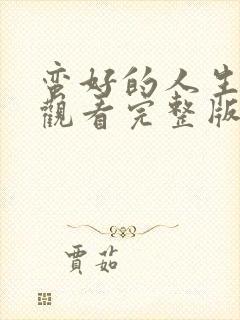 蛮好的人生
觀看完整版
賈茹